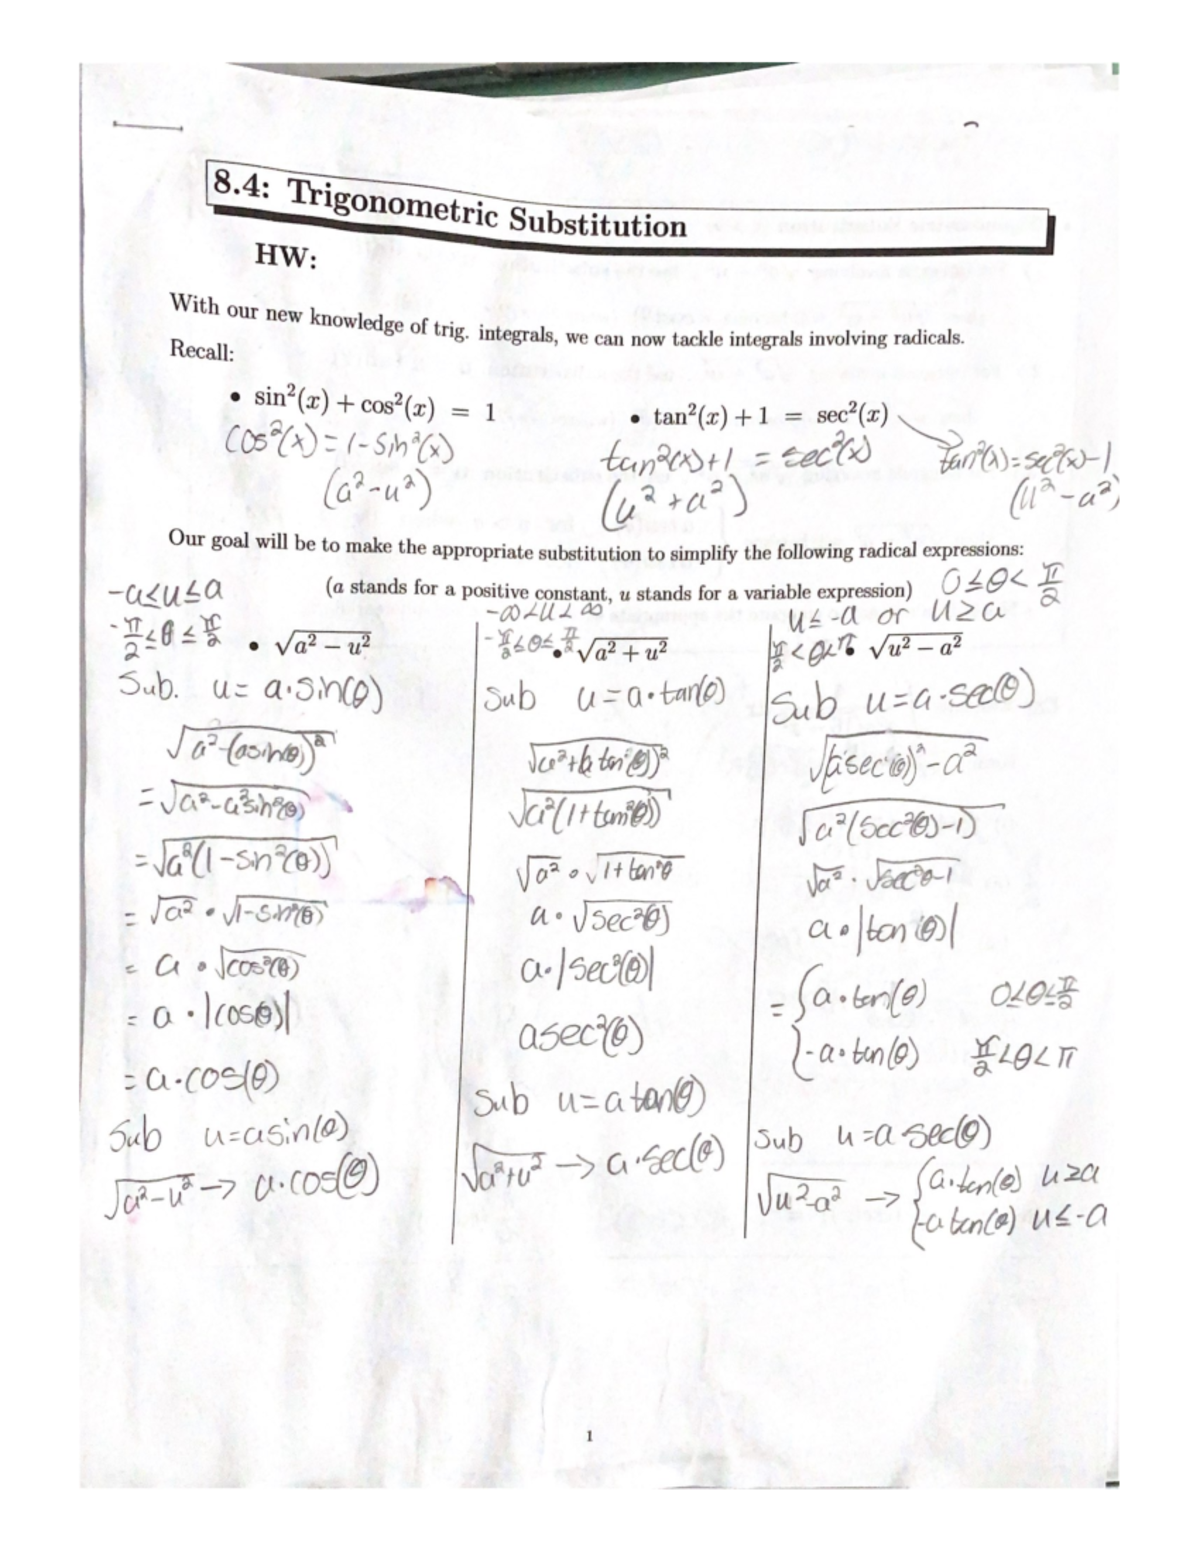 8.4: Trigonometric Substitution
HW:
With our new knowledge of trig. integrals, we can now tackle integrals involving radicals.
Recall:
• sin²(x) + cos²(x) = 1
cos²(x) = 1 - sin²(x)
(a² - u²)
• tan²(x) + 1 = sec²(x)
tan²(x) + 1 = sec²(x)
(u² + a²)
tan²(x) = sec²(x) - 1
(u² - a²)
Our goal will be to make the appropriate substitution to simplify the following radical expressions:
(a stands for a positive constant, u stands for a variable expression)
-a ≤ u ≤ a
-π/2 ≤ θ ≤ π/2
• √(a² − u²)
Sub. u = a·sin(θ)
√(a² - (asin(θ))²)
= √(a² - a²sin²(θ))
= √(a²(1 - sin²(θ)))
= √a² • √(1 - sin²(θ))
= a • √(cos²(θ))
= a • |cosθ)|
= a·cos(θ)
Sub u = asin(θ)
√(a² - u²) → a·cos(θ)
-∞ < u < ∞
-π/2 ≤ θ ≤ π/2
• √(a² + u²)
Sub u = a·tan(θ)
√(a² + (a tan(θ))²)
√(a²(1 + tan²(θ)))
√a² • √(1 + tan²θ)
a • √(sec²(θ))
a·|sec²(θ)|
asec²(θ)
Sub u = a tan(θ)
√(a² + u²) → a·sec(θ)
0 ≤ θ < π/2
u ≤ -a or u ≥ a
π/2 < θ < π
• √(u² − a²)
Sub u = a·sec(θ)
√((a sec(θ))² - a²)
√(a²(sec²(θ) - 1))
√a² · √(sec²θ - 1)
a • |tan(θ)|
= { a • tan(θ) 0 ≤ θ ≤ π/2
{ -a • tan(θ) π/2 < θ < π
Sub u = a·sec(θ)
√(u² - a²) → { a·tan(θ) u ≥ a
{ -a tan(θ) u ≤ -a
1